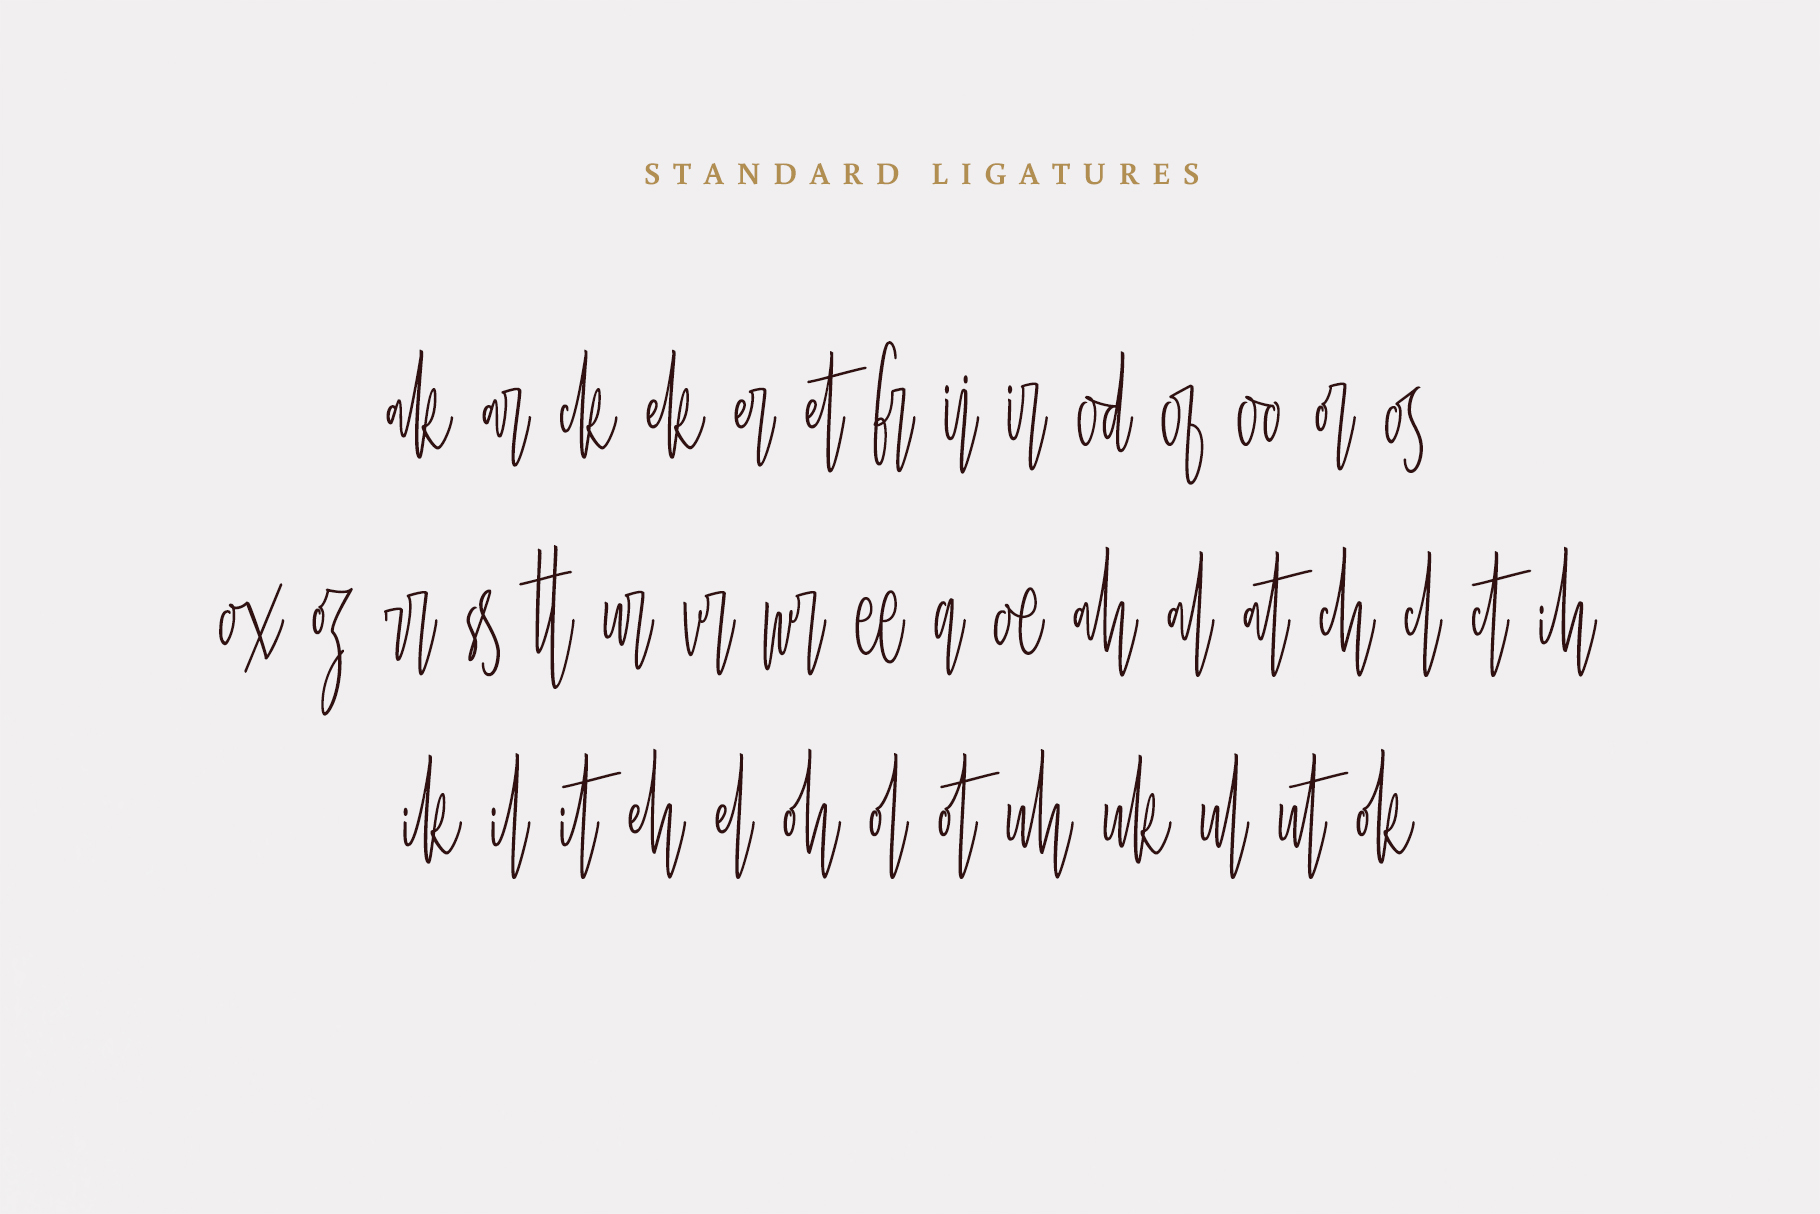 STANDARD LIGATURES
ak ar ck ek er et fr ij ir od of oo or os
ox oz rr ss tt ur vr wr ee a oe ah al at ch cl ct ih
ik il it eh el oh ol ot uh uk ul ut ok